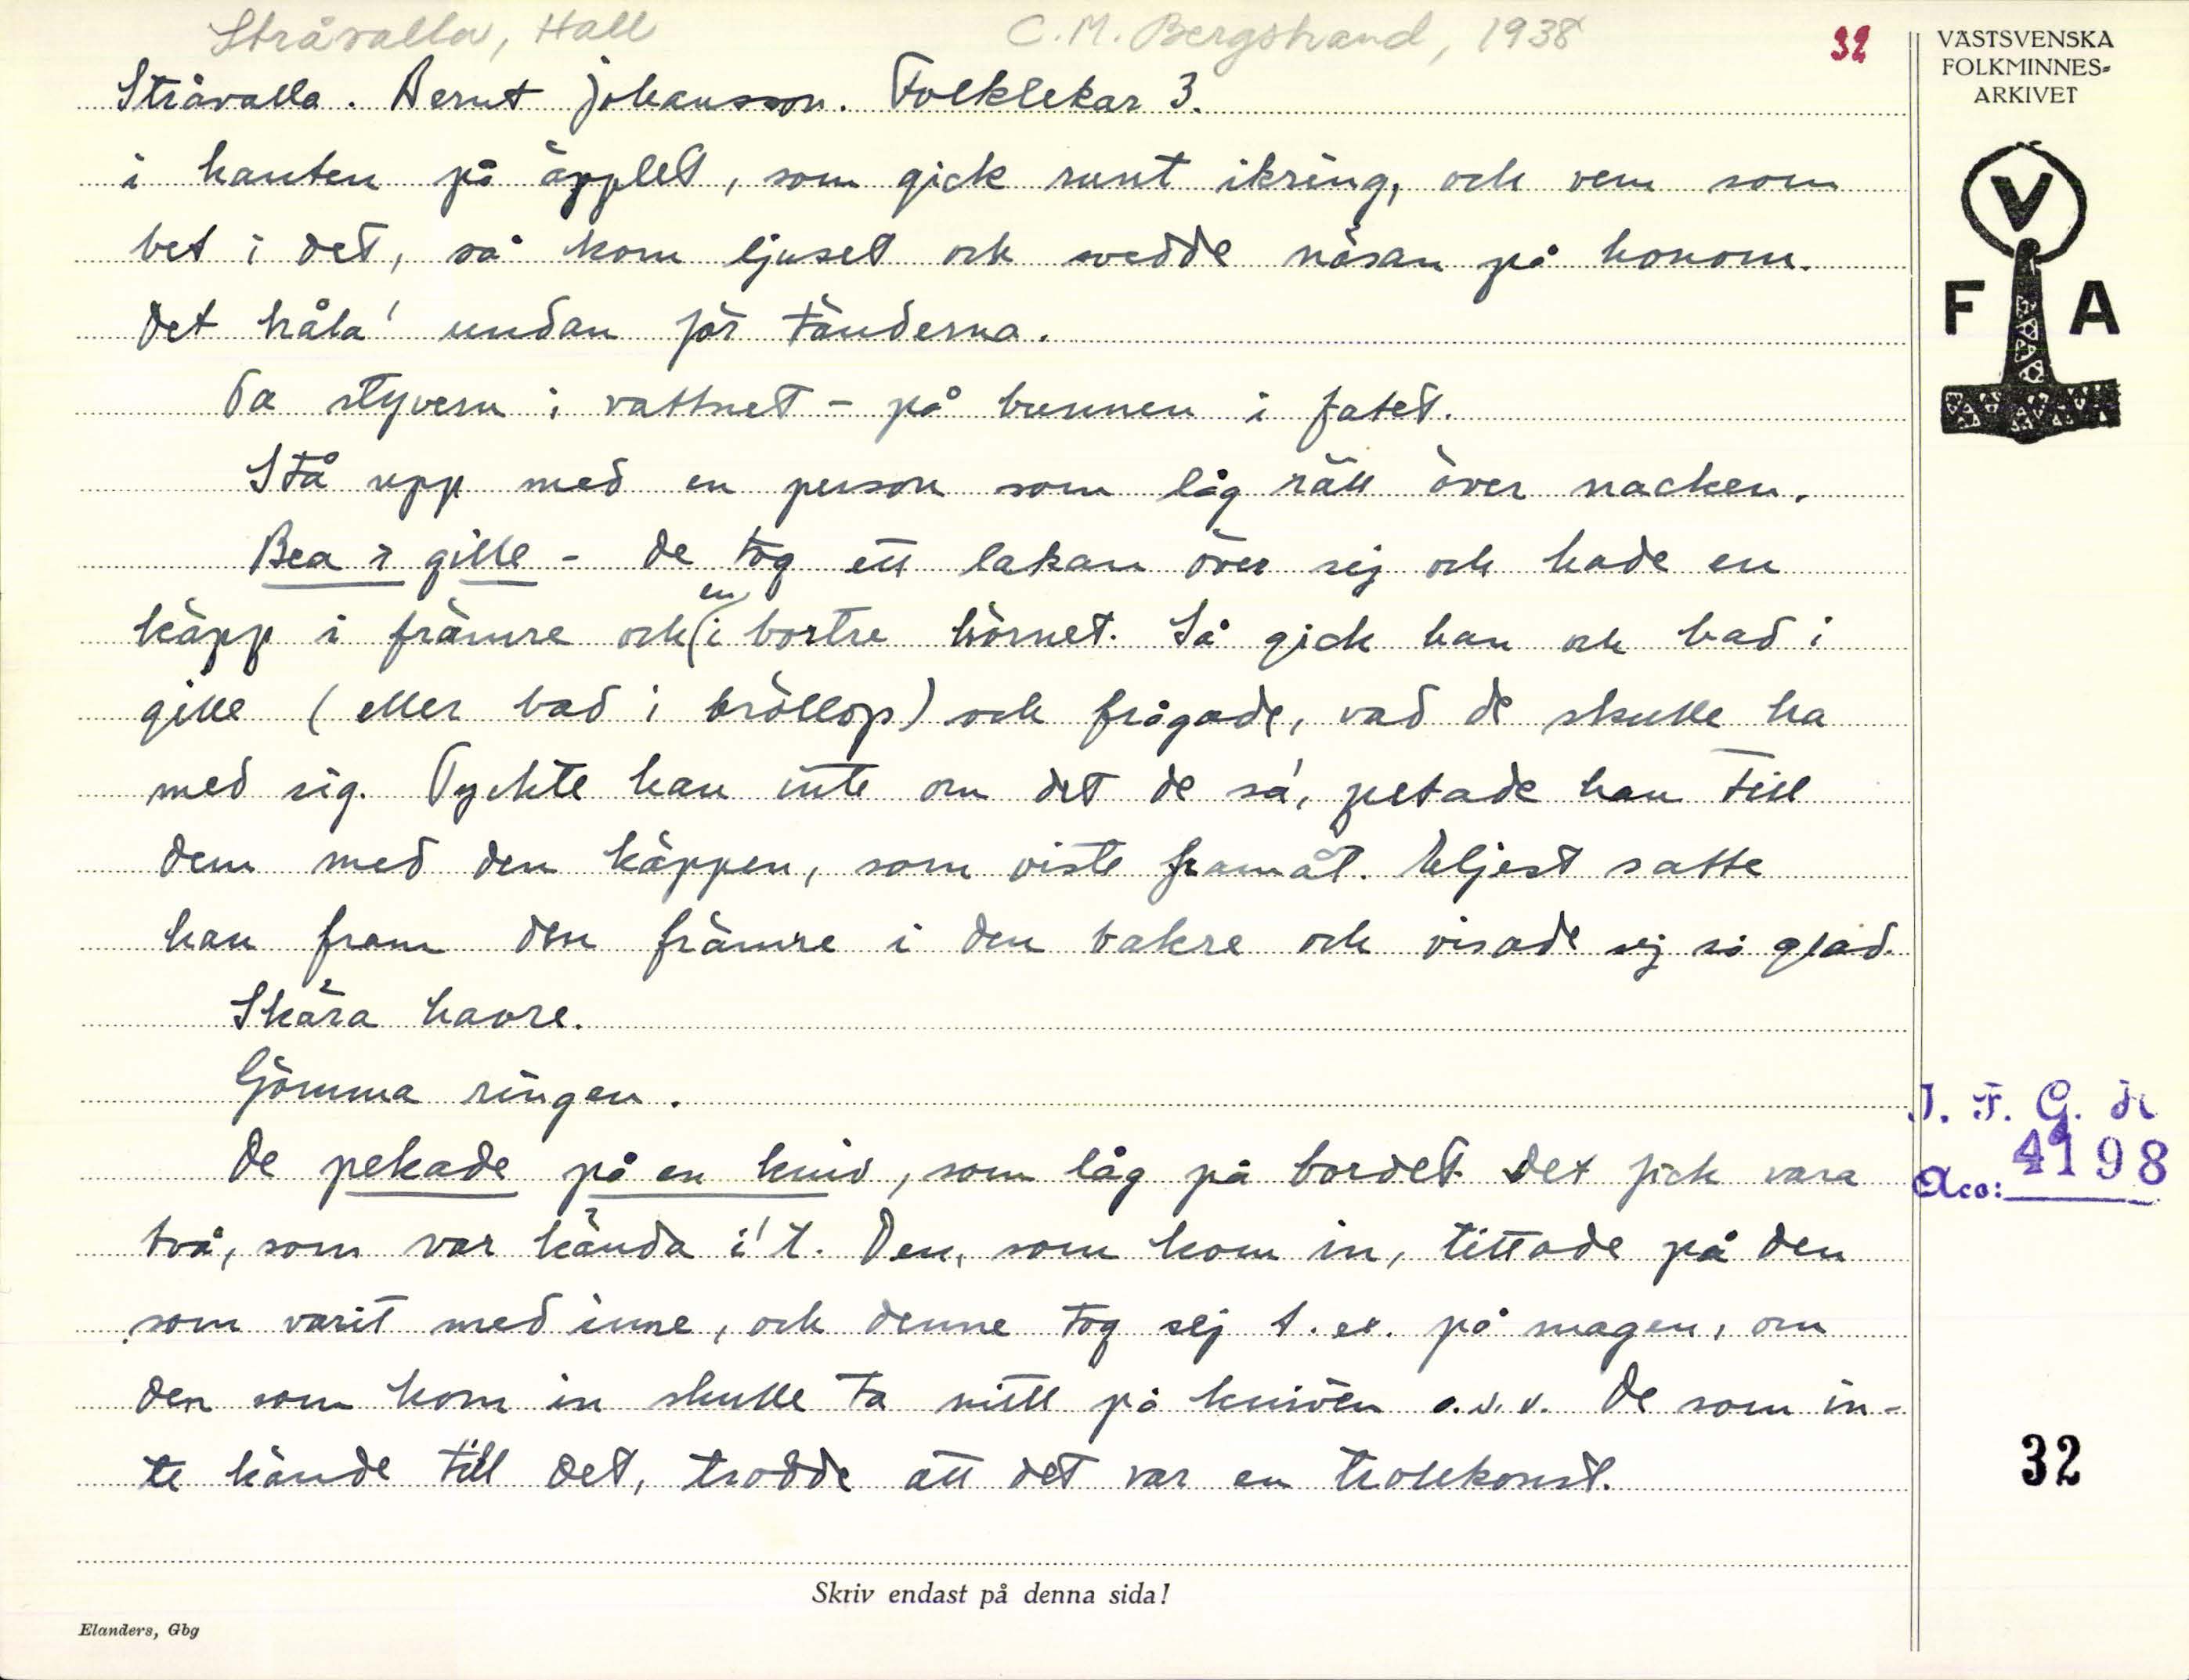 Stråvalla, Hall
C. M. Bergstrand, 1938
32
VÄSTSVENSKA
FOLKMINNES-
ARKIVET
V
F A
Stråvalla. Bernt Johansson. Folklekar 3.
i kanten på äpplet, som gick runt ikring, och vem som
bet i det, så kom ljuset och svedde näsan på honom.
Det håla' undan för tänderna.
Ta styvern i vattnet - på bunnen i fatet.
Stå upp med en person som låg rätt över nacken.
Bea i gille - de tog ett lakan över sig och hade en
käpp i främre och en i bortre hörnet. Så gick han och bad i
gille (eller bad i bröllop) och frågade, vad de skulle ha
med sig. Tyckte han inte om det de sa', petade han till
dem med den käppen, som viste framåt. Eljest satte
han fram den främre i den bakre och visade sej så glad.
Skära havre.
Gömma ringen.
De pekade på en kniv, som låg på bordet. Det fick vara
två, som var kända i't. Den, som kom in, tittade på den
som varit med inne, och denne tog sej t. ex. på magen, om
den som kom in skulle ta mitt på kniven o.s.v. De som in-
te kände till det, trodde att det var en trollkonst.
I. F. G. H
Acc: 4198
32
Skriv endast på denna sida!
Elanders, Gbg